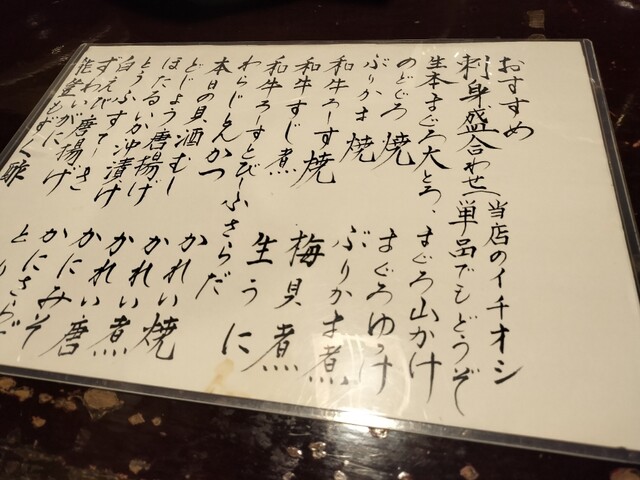 おすすめ
刺身盛合わせ(当店のイチオシ
単品でもどうぞ
生本まぐろ大とろ、まぐろ山かけ
のどぐろ焼 まぐろゆっけ
ぶりかま焼 ぶりかま煮
和牛ろーす焼 梅貝煮
和牛すじ煮 生うに
和牛ろーすとびーふさらだ
わらじとんかつ
本日の貝酒むし かれい焼
どじょう唐揚げ かれい煮
ほたるいか沖漬け かれい唐
とうふすてーき かにみそ
白えび唐揚げ かにさらだ
ずわいがに
釜あげ
もずく酢